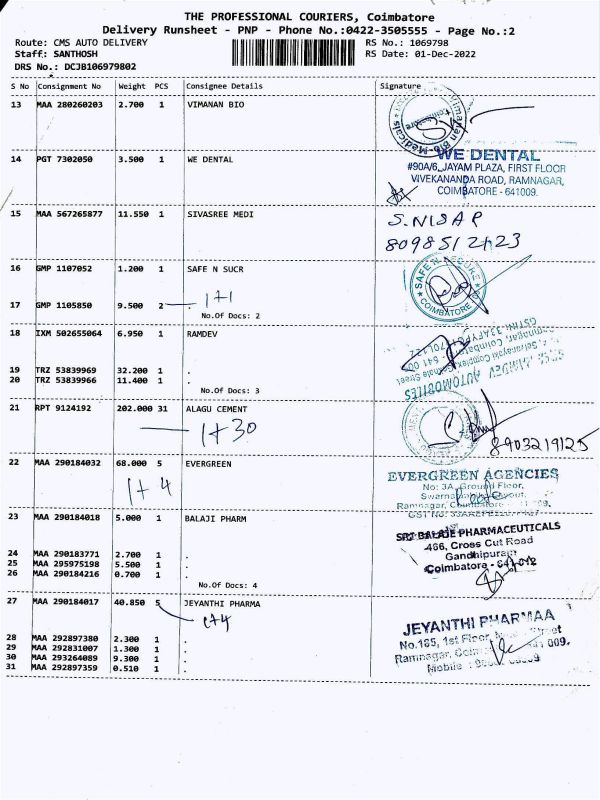 THE PROFESSIONAL COURIERS, Coimbatore
Delivery Runsheet - PNP - Phone No.:0422-3505555 - Page No.:2
Route: CMS AUTO DELIVERY RS No.: 1069798
Staff: SANTHOSH RS Date: 01-Dec-2022
DRS No.: DCJB106979802
S No Consignment No Weight PCS Consignee Details Signature
13 MAA 280260203 2.700 1 VIMANAN BIO
Vimanan Bio-Medicals
Coimbatore
14 PGT 7302050 3.500 1 WE DENTAL
WE DENTAL
#90A/6, JAYAM PLAZA, FIRST FLOOR
VIVEKANANDA ROAD, RAMNAGAR,
COIMBATORE - 641009.
15 MAA 567265877 11.550 1 SIVASREE MEDI
S.NISAR
16 GMP 1107052 1.200 1 SAFE N SUCR
SAFE N SECURE
COIMBATORE
17 GMP 1105850 9.500 2 .
1+1
No.Of Docs: 2
18 IXM 502655064 6.950 1 RAMDEV
AUTOMOBILES
19 TRZ 53839969 32.200 1 .
20 TRZ 53839966 11.400 1 .
No.Of Docs: 3
21 RPT 9124192 202.000 31 ALAGU CEMENT
1+30
8903219125
22 MAA 290184032 68.000 5 EVERGREEN
1+4
EVERGREEN AGENCIES
No: 3A, Ground Floor,
Ramnagar,
23 MAA 290184018 5.000 1 BALAJI PHARM
SRI BALAJE PHARMACEUTICALS
466, Cross Cut Road
Gandhipuram
Coimbatore - 641 012
24 MAA 290183771 2.700 1 .
25 MAA 295975198 5.500 1 .
26 MAA 290184216 0.700 1 .
No.Of Docs: 4
27 MAA 290184017 40.850 5 JEYANTHI PHARMA
1+4
JEYANTHI PHARMAA
No.165, 1st Floor, Street
Ramnagar, 009.
Mobile :
28 MAA 292897380 2.300 1 .
29 MAA 292831007 1.300 1 .
30 MAA 293264089 9.300 1 .
31 MAA 292897359 0.510 1 .